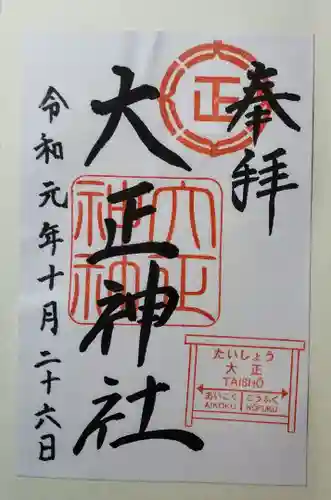 奉拝
正
大正神社
大正神社
たいしょう
大正
TAISHŌ
あいこく こうふく
AIKOKU KŌFUKU
令和元年十月二十六日